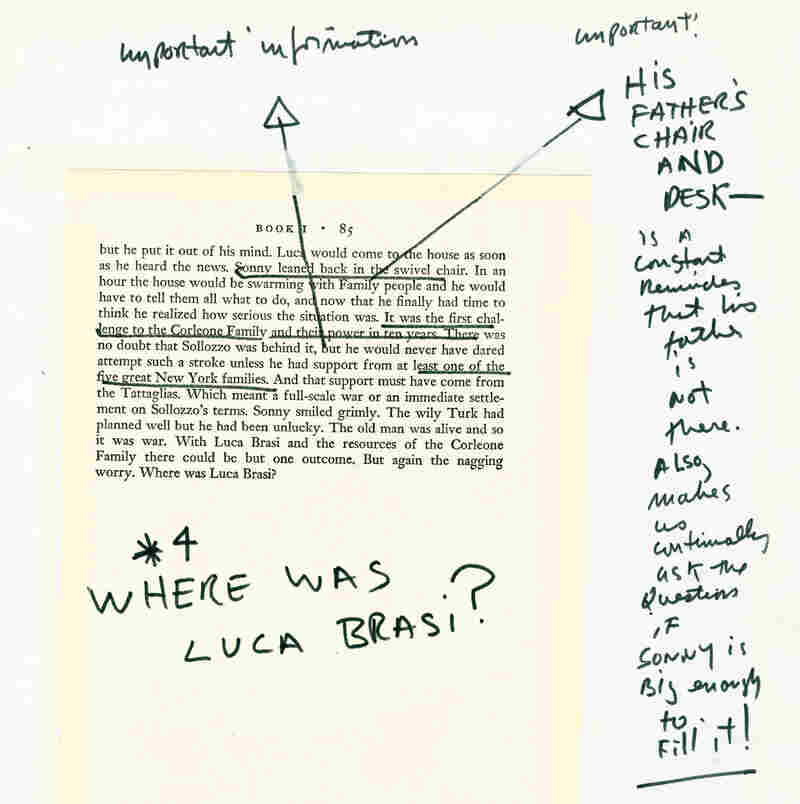 important information
important!
HIS
FATHER'S
CHAIR
AND
DESK—
is a
constant
Reminder
that his
father
is
not
there.
ALSO,
makes
us
continually
ask the
Question
iF
SONNY is
Big enough
to
Fill it!
BOOK I · 85
but he put it out of his mind. Luca would come to the house as soon
as he heard the news. Sonny leaned back in the swivel chair. In an
hour the house would be swarming with Family people and he would
have to tell them all what to do, and now that he finally had time to
think he realized how serious the situation was. It was the first chal-
lenge to the Corleone Family and their power in ten years. There was
no doubt that Sollozzo was behind it, but he would never have dared
attempt such a stroke unless he had support from at least one of the
five great New York families. And that support must have come from
the Tattaglias. Which meant a full-scale war or an immediate settle-
ment on Sollozzo's terms. Sonny smiled grimly. The wily Turk had
planned well but he had been unlucky. The old man was alive and so
it was war. With Luca Brasi and the resources of the Corleone
Family there could be but one outcome. But again the nagging
worry. Where was Luca Brasi?
*4
WHERE WAS
LUCA BRASi?